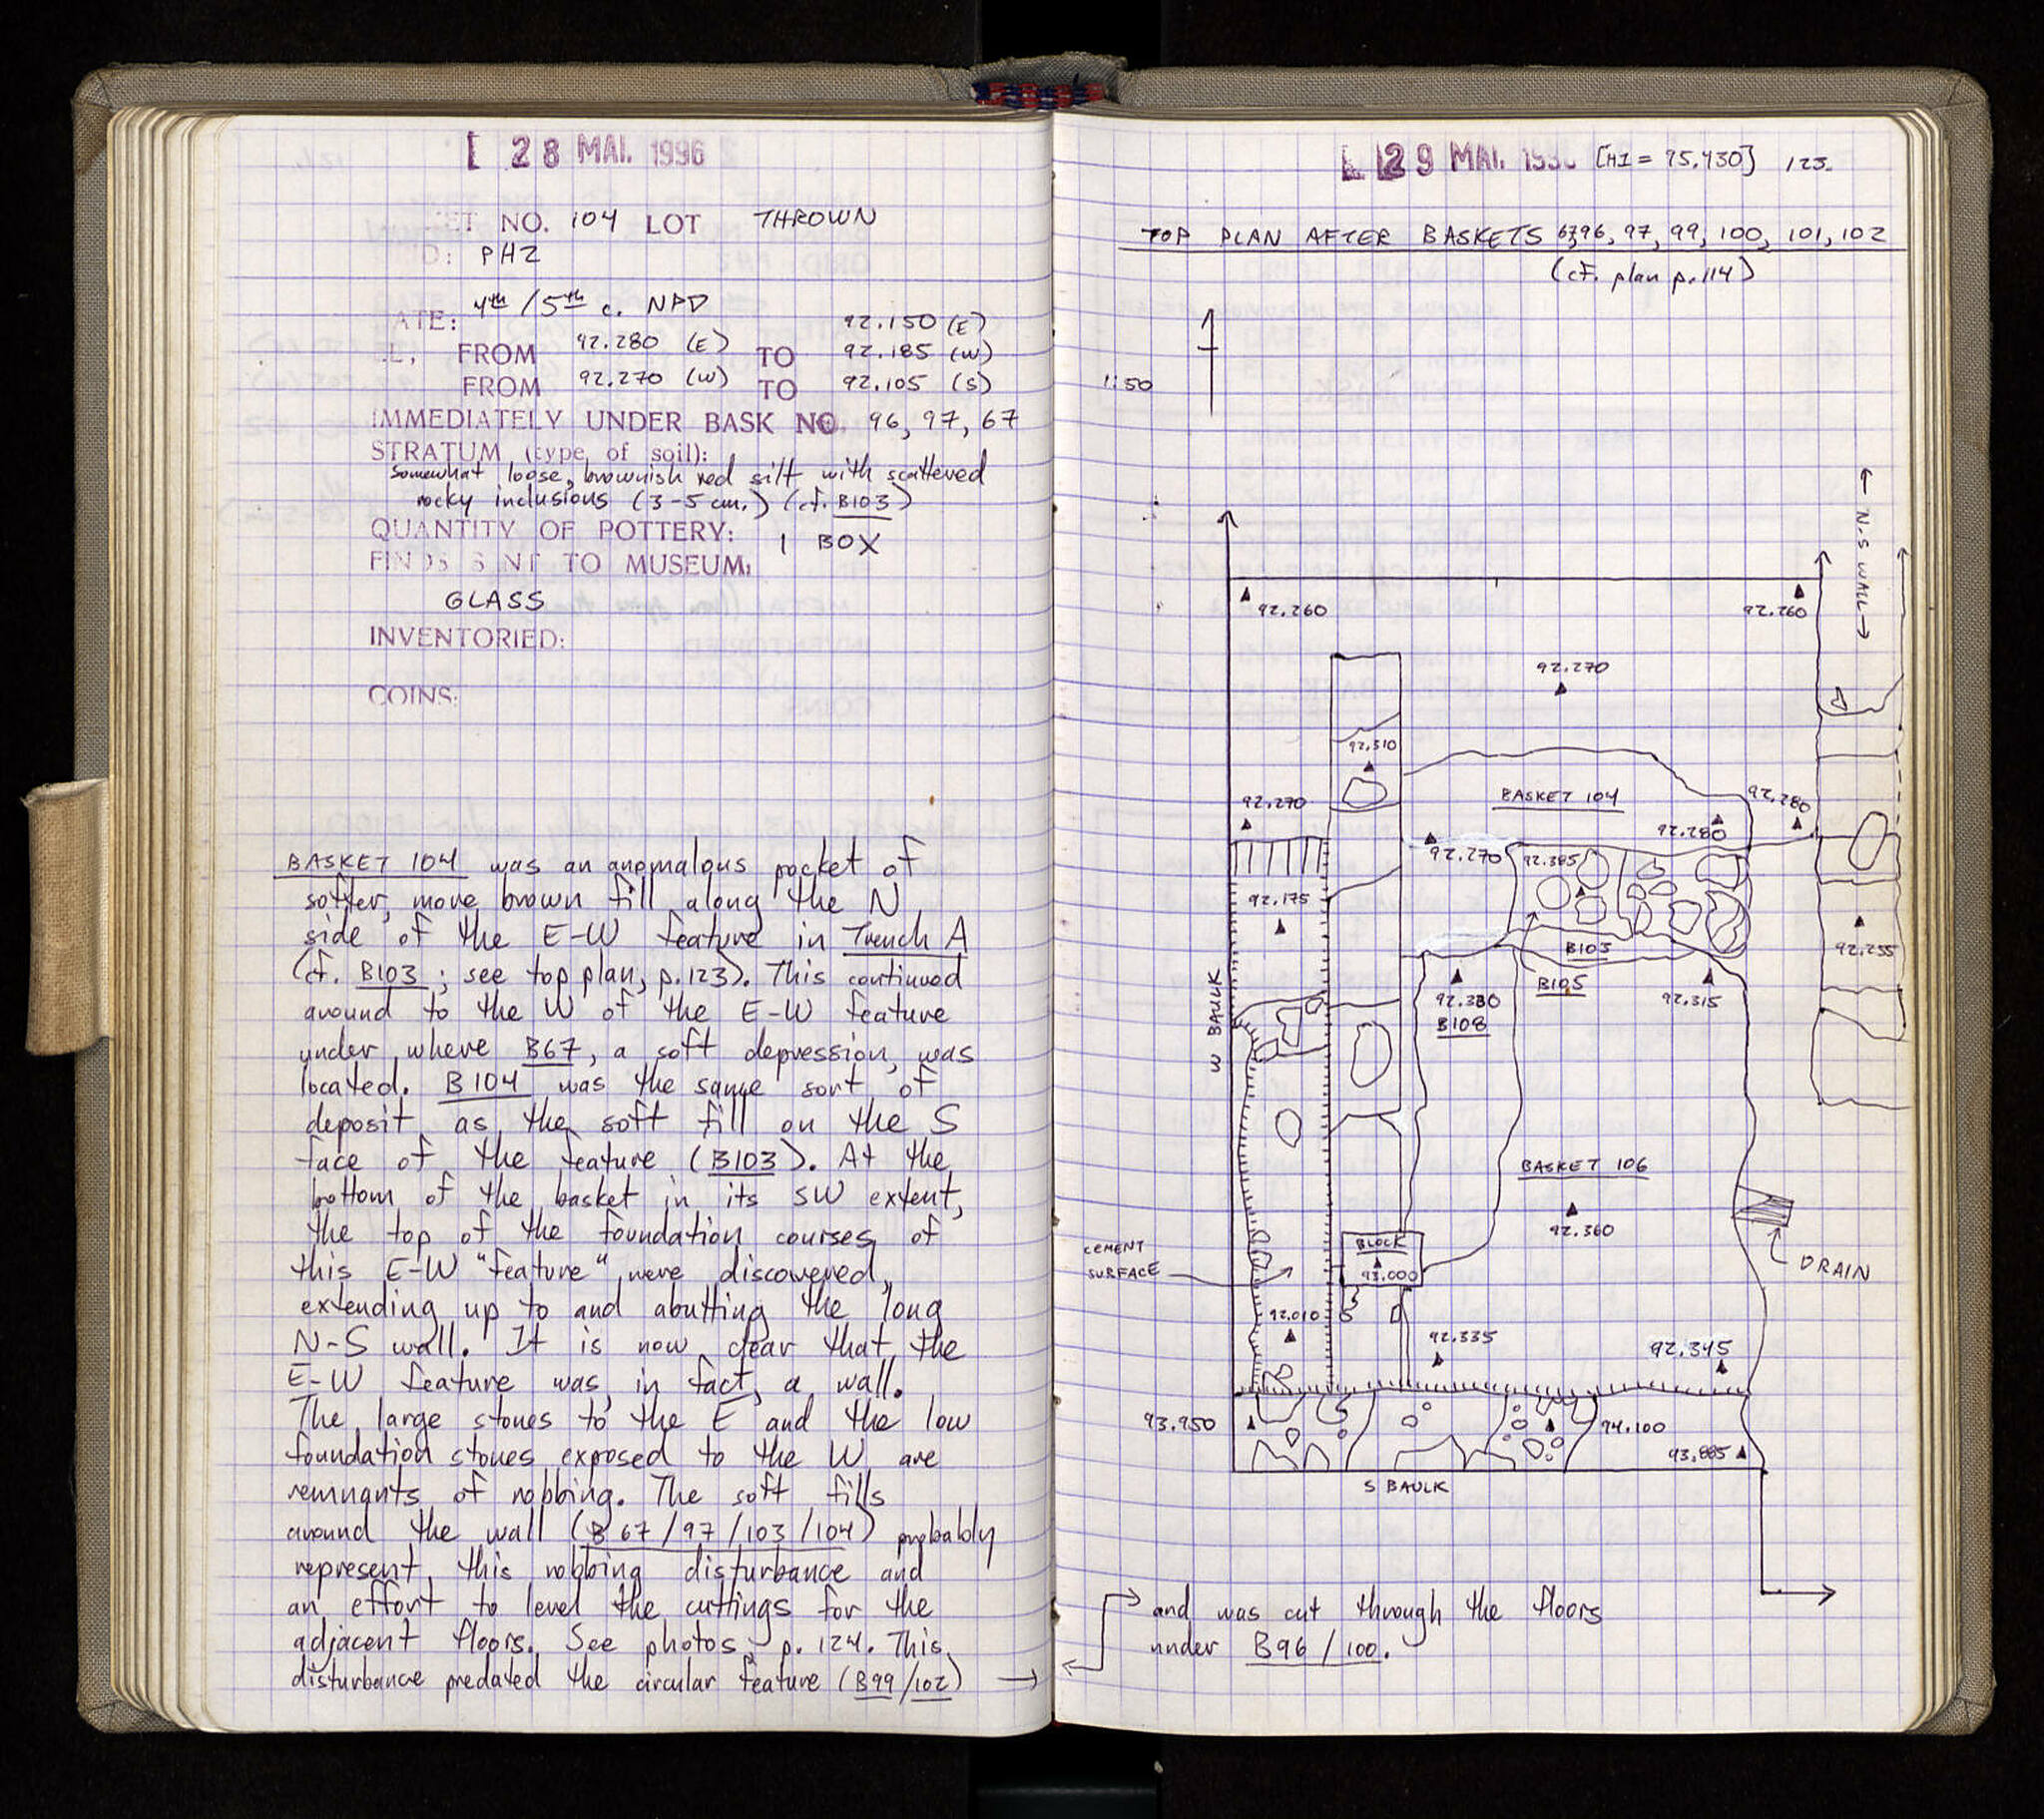 [ 28 MAI. 1996
ET NO. 104 LOT THROWN
ID: PHZ
ATE: 4th/5th c. NPD
92.150 (E)
EL, FROM 92.280 (E) TO 92.185 (W)
FROM 92.270 (W) TO 92.105 (S)
IMMEDIATELY UNDER BASK NO. 96, 97, 67
STRATUM (type of soil):
somewhat loose, brownish red silt with scattered
rocky inclusions (3-5 cm.) (cf. B103)
QUANTITY OF POTTERY: 1 BOX
FINDS SENT TO MUSEUM:
GLASS
INVENTORIED:
COINS:
BASKET 104 was an anomalous pocket of
softer, more brown fill along the N
side of the E-W feature in Trench A
(cf. B103; see top plan, p.123). This continued
around to the W of the E-W feature
under where B67, a soft depression, was
located. B104 was the same sort of
deposit as the soft fill on the S
face of the feature (B103). At the
bottom of the basket in its SW extent,
the top of the foundation courses of
this E-W "feature" were discovered,
extending up to and abutting the long
N-S wall. It is now clear that the
E-W feature was, in fact, a wall.
The large stones to the E and the low
foundation stones exposed to the W are
remnants of robbing. The soft fills
around the wall (B67/97/103/104) probably
represent this robbing disturbance and
an effort to level the cuttings for the
adjacent floors. See photos, p. 124. This
disturbance predated the circular feature (B99/102) →
29 MAI. 199 [HI = 95.430] 123.
TOP PLAN AFTER BASKETS 67, 96, 97, 99, 100, 101, 102
(cf. plan p.114)
1:50
← N-S WALL →
92.260
92.260
92.270
92.310
BASKET 104
92.270
92.280
92.280
92.270
92.385
92.175
B103
92.255
B105
92.380
B108
92.315
W BAULK
BASKET 106
92.360
DRAIN
CEMENT
SURFACE
BLOCK
93.000
92.010
92.335
92.345
93.950
94.100
93.885
S BAULK
and was cut through the floors
under B96/100.